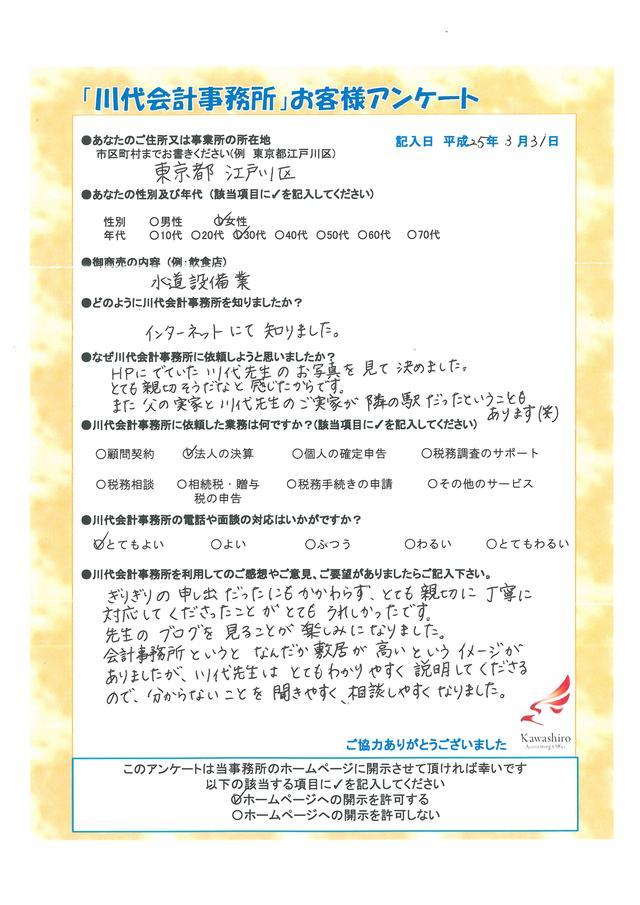 「川代会計事務所」お客様アンケート
●あなたのご住所又は事業所の所在地
記入日 平成25年 3月31日
市区町村までお書きください(例 東京都江戸川区)
東京都 江戸川区
●あなたの性別及び年代 (該当項目に✓を記入してください)
性別 ○男性 ✓女性
年代 ○10代 ○20代 ✓30代 ○40代 ○50代 ○60代 ○70代
●御商売の内容 (例・飲食店)
水道設備業
●どのように川代会計事務所を知りましたか?
インターネットにて 知りました。
●なぜ川代会計事務所に依頼しようと思いましたか?
HPにでていた 川代先生の お写真を 見て 決めました。
とても 親切 そうだなと 感じたからです。
また 父の実家と川代先生のご実家が 隣の駅だったということも
あります(笑)
●川代会計事務所に依頼した業務は何ですか?(該当項目に✓を記入してください)
○顧問契約 ✓法人の決算 ○個人の確定申告 ○税務調査のサポート
○税務相談 ○相続税・贈与税の申告 ○税務手続きの申請 ○その他のサービス
●川代会計事務所の電話や面談の対応はいかがですか?
✓とてもよい ○よい ○ふつう ○わるい ○とてもわるい
●川代会計事務所を利用してのご感想やご意見、ご要望がありましたらご記入下さい。
ぎりぎりの 申し出だったにもかかわらず、とても 親切に 丁寧に
対応してくださったことが とても うれしかったです。
先生の ブログを 見ることが 楽しみになりました。
会計事務所というと なんだか 敷居が 高いという イメージが
ありましたが、川代先生は とてもわかりやすく 説明してくださる
ので、分からないことを 聞きやすく、相談しやすく なりました。
Kawashiro
Accounting Office
ご協力ありがとうございました
このアンケートは当事務所のホームページに開示させて頂ければ幸いです
以下の該当する項目に✓を記入してください
✓ホームページへの開示を許可する
○ホームページへの開示を許可しない